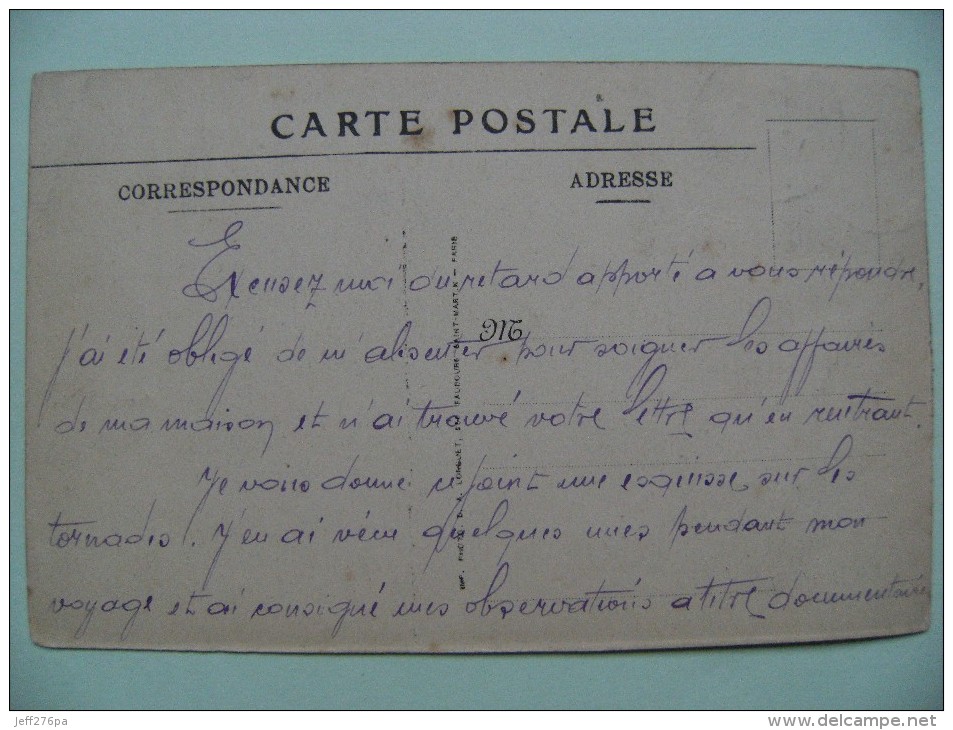 CARTE POSTALE
CORRESPONDANCE
ADRESSE
Excusez moi du retard apporté a vous répondre.
J'ai été obligé de m'absenter pour soigner les affaires
de ma maison et n'ai trouvé votre lettre qu'en rentrant.
Je vous donne ci joint une esquisse sur les
tornades. J'en ai vécu quelques unes pendant mon
voyage et ai consigné mes observations a titre documentaire
FAUBOURG SAINT-MARTIN — PARIS
jeff276pa
http://www.delcampe.net